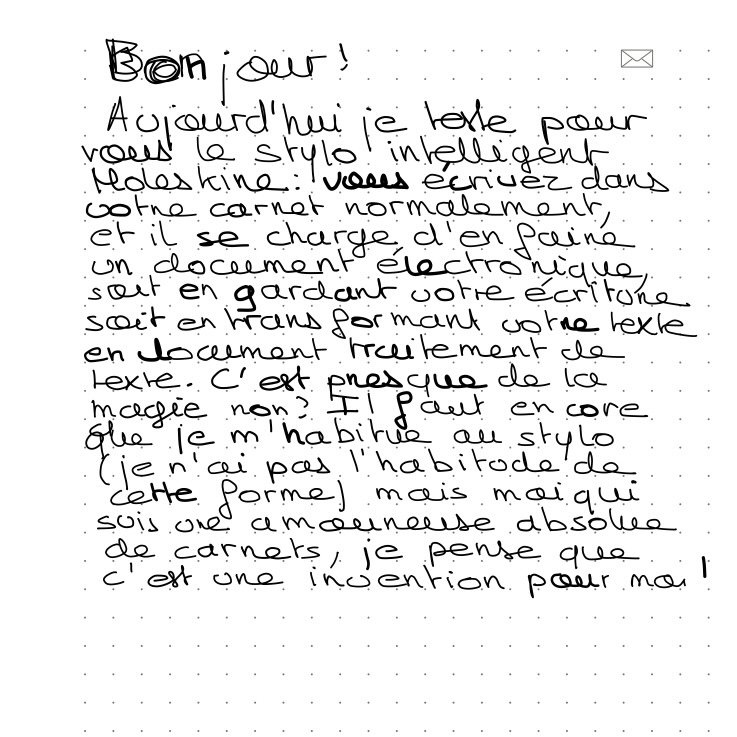 Bonjour !
Aujourd'hui je teste pour
vous le stylo intelligent
Moleskine : vous écrivez dans
votre carnet normalement,
et il se charge d'en faire
un document électronique,
soit en gardant votre écriture
soit en transformant votre texte
en document traitement de
texte. C'est presque de la
magie non ? Il faut encore
que je m'habitue au stylo
(je n'ai pas l'habitude de
cette forme) mais moi qui
suis une amoureuse absolue
de carnets, je pense que
c'est une invention pour moi !